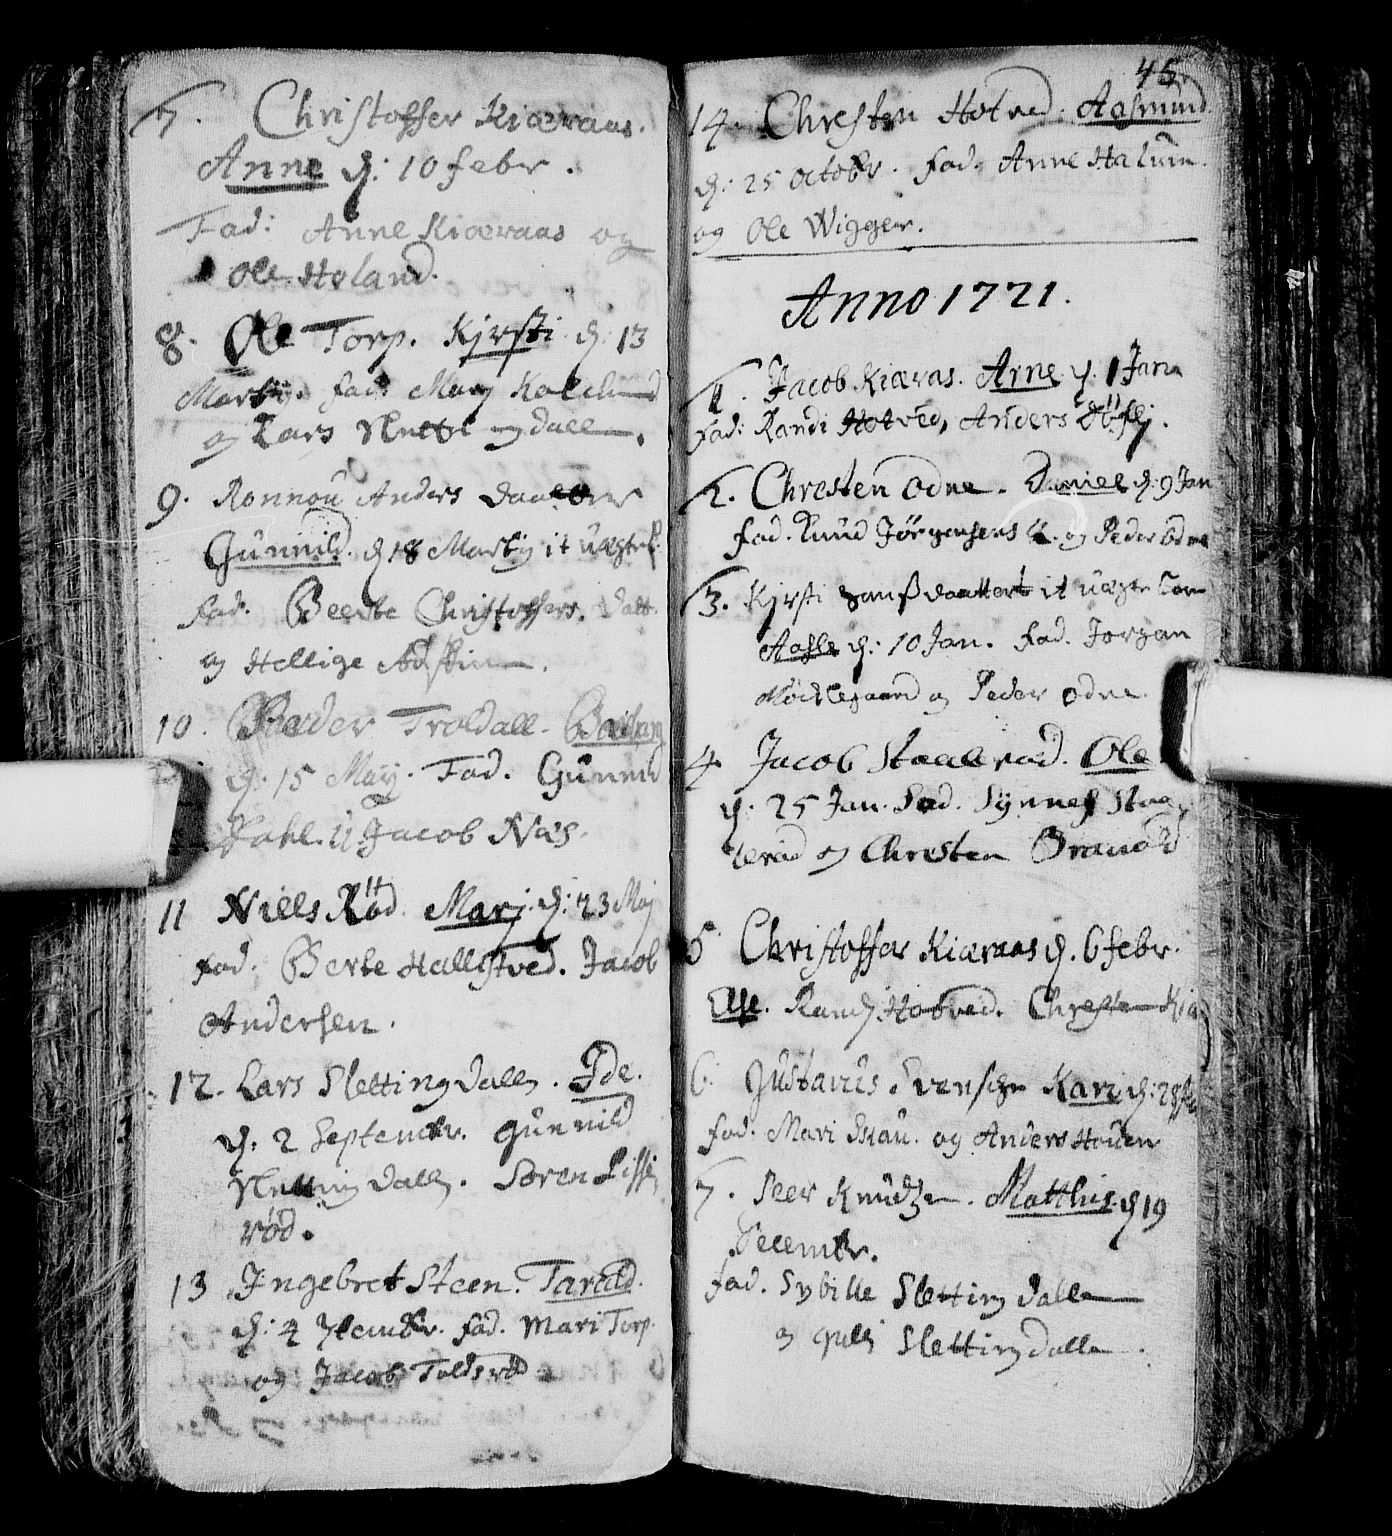 7. Christoffer Kiæraas.
Anne d: 10 febr.
Fad: Anne Kiæraas og
Ole Holand.
8. Ole Torp. Kjrsti d: 13
Martij. fad: Marj
og Lars Slettingdallen.
9. Ronnou Anders daatter
Gunnild. d 18 Martij it uægte
fad. Beerte Christoffers. datt.
og Hellige
10. Peder Troldall.
d: 15 Maij. Fad. Gunnild
Dahl. Jacob Næs.
11 Niells Röd. Marj. d: 23 Maj
fad. Berte Hallstved. Jacob
Andersen.
12. Lars Slettingdalln. Ide.
d: 2 Septembr. gunnild
Slettingdalln. Søren
rød.
13 Ingebret Steen. Taruld.
d: 4 7tembr. fad. Mari Torp.
og Jacob Toldsrød
45.
14. Chresten Hotved. Aasmund.
d: 25 octobr. fad. Anne Halum.
og Ole Wigger.
Anno 1721.
1. Jacob Kiæras. Arne d. 1 Jan
fad: Randi Hotved, Anders
2. Chresten Odne. Daniel d: 9 Jan
fad. Knud Jørgensens og Peder Odne
3. Kjrsti Hanssdaatters it uægte
Aasle d: 10 Jan. fad. Jorgan
Möchlegaard og Peder Odne
4. Jacob Staalerød. Ole
d: 25 Jan. Fad. Synnef Staa
lerød og Chresten
5 Christoffer Kiæraas d. 6 febr.
Else. Randj Hotved. Chresten Kiæ
6. Gustavus Svensen Kari d: 28
fad: Mari og Anders Houen
7. Peer Knudtzen. Matthis d 19
Decembr.
fad. Sybille Slettingdallen
og Slettingdallen.